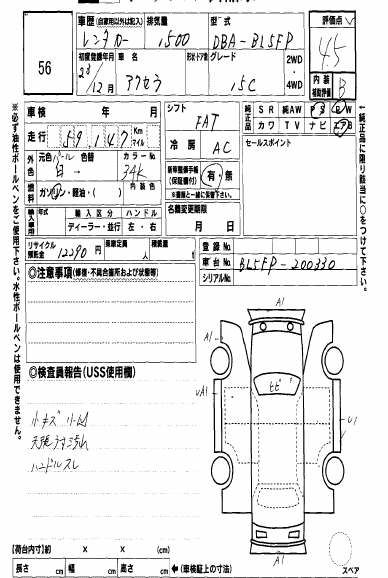 車歴 (自家用以外は記入) 排気量 型式 評価点
レンタカー 1500 DBA-BL5FP 4.5
56
初度登録年月 車名 形状・ドア数 グレード 2WD・4WD 内装補助評価
23/12月 アクセラ 15C B
車検 年 月 シフト FAT
純正品 SR 純AW PS PW
カワ TV ナビ エアB
走行 59,147 Km マイル
冷房 AC
セールスポイント
外色 元色 パール 色替 カラーNo.
白→ 34K
燃料 ガソリン・軽油・( ) 内装色
新車整備手帳(保証書付) 有・無
※書面と一緒に保管下さい。
名義変更期限 月 日
輸入車用 年式 輸入区分 ハンドル
ディーラー・並行 左・右
リサイクル預託金 12290円 乗車定員 人 積載量 kg
登録No.
車台No. BL5FP-200330
シリアルNo.
◎注意事項(修復・不具合箇所および状態等)
◎検査員報告(USS使用欄)
小キズ 小凹
天張うす汚れ
ハンドルスレ
A1
UA1
ヒビ
U1
A1
【荷台内寸】 x x (cm)
長さ cm 幅 cm 高さ cm ←(車検証上の寸法)
スペア
※必ず油性ボールペンをご使用下さい。水性ボールペンは使用できません。
←純正品に限り該当に○をつけて下さい。